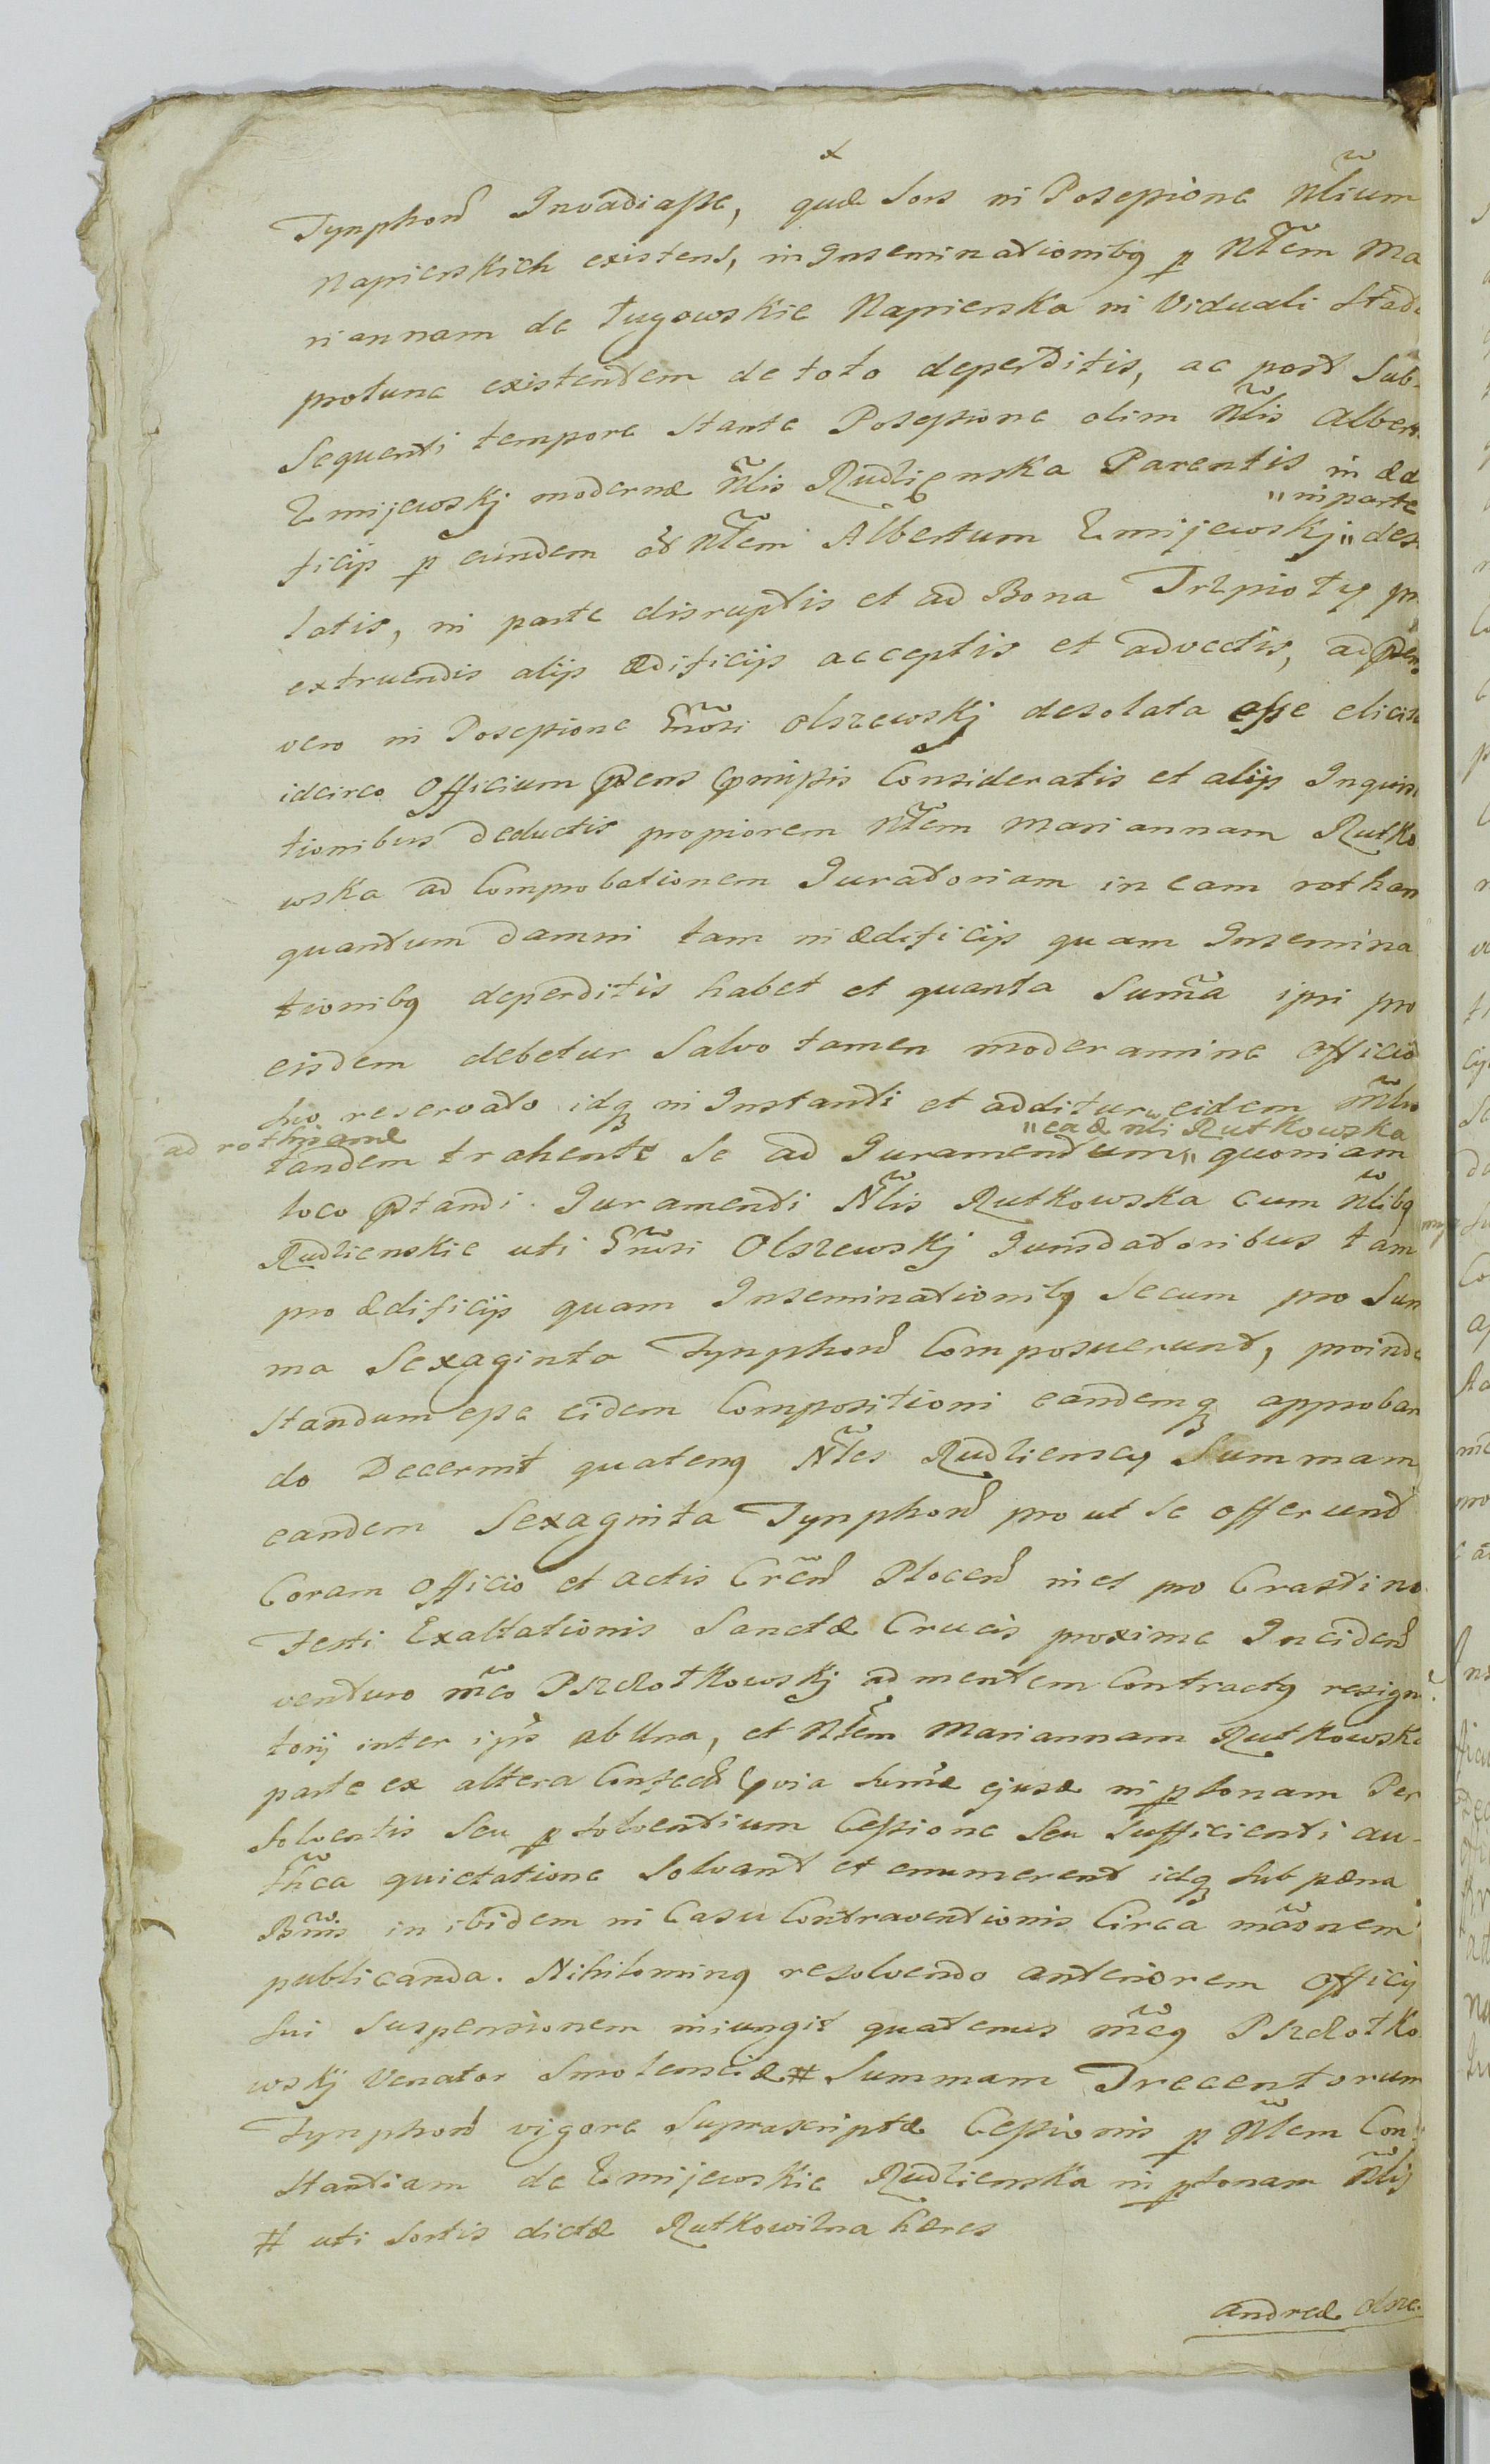 Tynphorū Invadiasse, quæ Sors in Possessione Nlium
Napierskich existens, in Inseminationibg p Nlem Ma
riannam de Ługowskie Napierska in Viduali Stadu
protunc existentem de toto deperditis, ac post Sub-
Sequenti tempore Stante Possessione olim Nlis Alber
Zmijewskj modernæ Nlis Rudzienska Parentis in æd
ficijs p eundem Nlem Albertum Zmijewskj " " in parte deso
latis, in parte disruptis et ad Bona Trzpioty p
extruendis alijs ædificijs acceptis et advectis, ad p̄ens
vero in Possessione Gnrosi Olszewskj desolata esse elicis
idcirco Officium p̄ens p̄missis Consideratis et alijs Inquisi
tionibus deductis propiorem Nlem Mariannam Rutko
wska ad Comprobationem Juratoriam in eam rotham
quantum damni tam in ædificijs quam Insemina
tionibg deperditis habet et quanta Summa ipsi pro
eisdem debetur Salvo tamen moderamine Officio
Suo reservato idq in Instanti et additur eidem Mlro
ad rothisand " ead Nli Rutkowska
tandem trahente Se ad Juramentum " quoniam
loco p̄standi Juramenti Nlis Rutkowska cum Nlibg
Rudzienskie uti Gnrosi Olszewskj Jurisdatoribus tam
pro ædificijs quam Inseminationibg Secum pro Sum
ma Sexaginta Tynphorū Composuerunt, proinde
Standum esse eidem Compositioni eandemq approban
do Decernit quateng Nles Rudzienscy Summam
eandem Sexaginta Tynphorū pro ut Se offerunt
Coram Officio et actis Crēn Plocen in et pro Crastino
Festi Exaltationis Sanctæ Crucis proxime Inciden
venturo Mco Pszczotkowskj ad mentem Contractg resigna
torij inter ips ab Una, et Nlem Mariannam Rutkowska
parte ex altera Confect quia Sumæ ejusd in psonam Per
Solventis Seu p Solventium Cessione Seu Sufficienti au-
thca quietatione Solvant et enumerent idq Sub pæna
Bnnis in ibidem in Casu Contraventionis Circa māonem
publicanda. Nihiloming resolvendo anteriorem Officij
Sui Suspensionem iniungit quatenus Mcg Pszczotko
wskj Venator Smolenseiæ # Summam Trecentorum
Tynphorū vigore Suprascriptæ Cessionis p Nlem Con
Stantiam de Zmijewskie Rudzienska in psonam Nlis
# uti Sortis dictæ Rutkowizna hæres
Andreæ Olsze